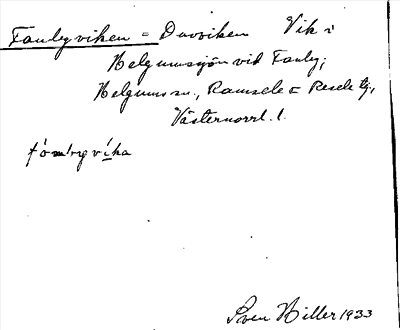 Fanbyviken = Duvviken Vik i
Helgumssjön vid Fanby;
Helgums sn., Ramsele o Resele tg,
Västernorrl. l.
Sven Hiller 1933